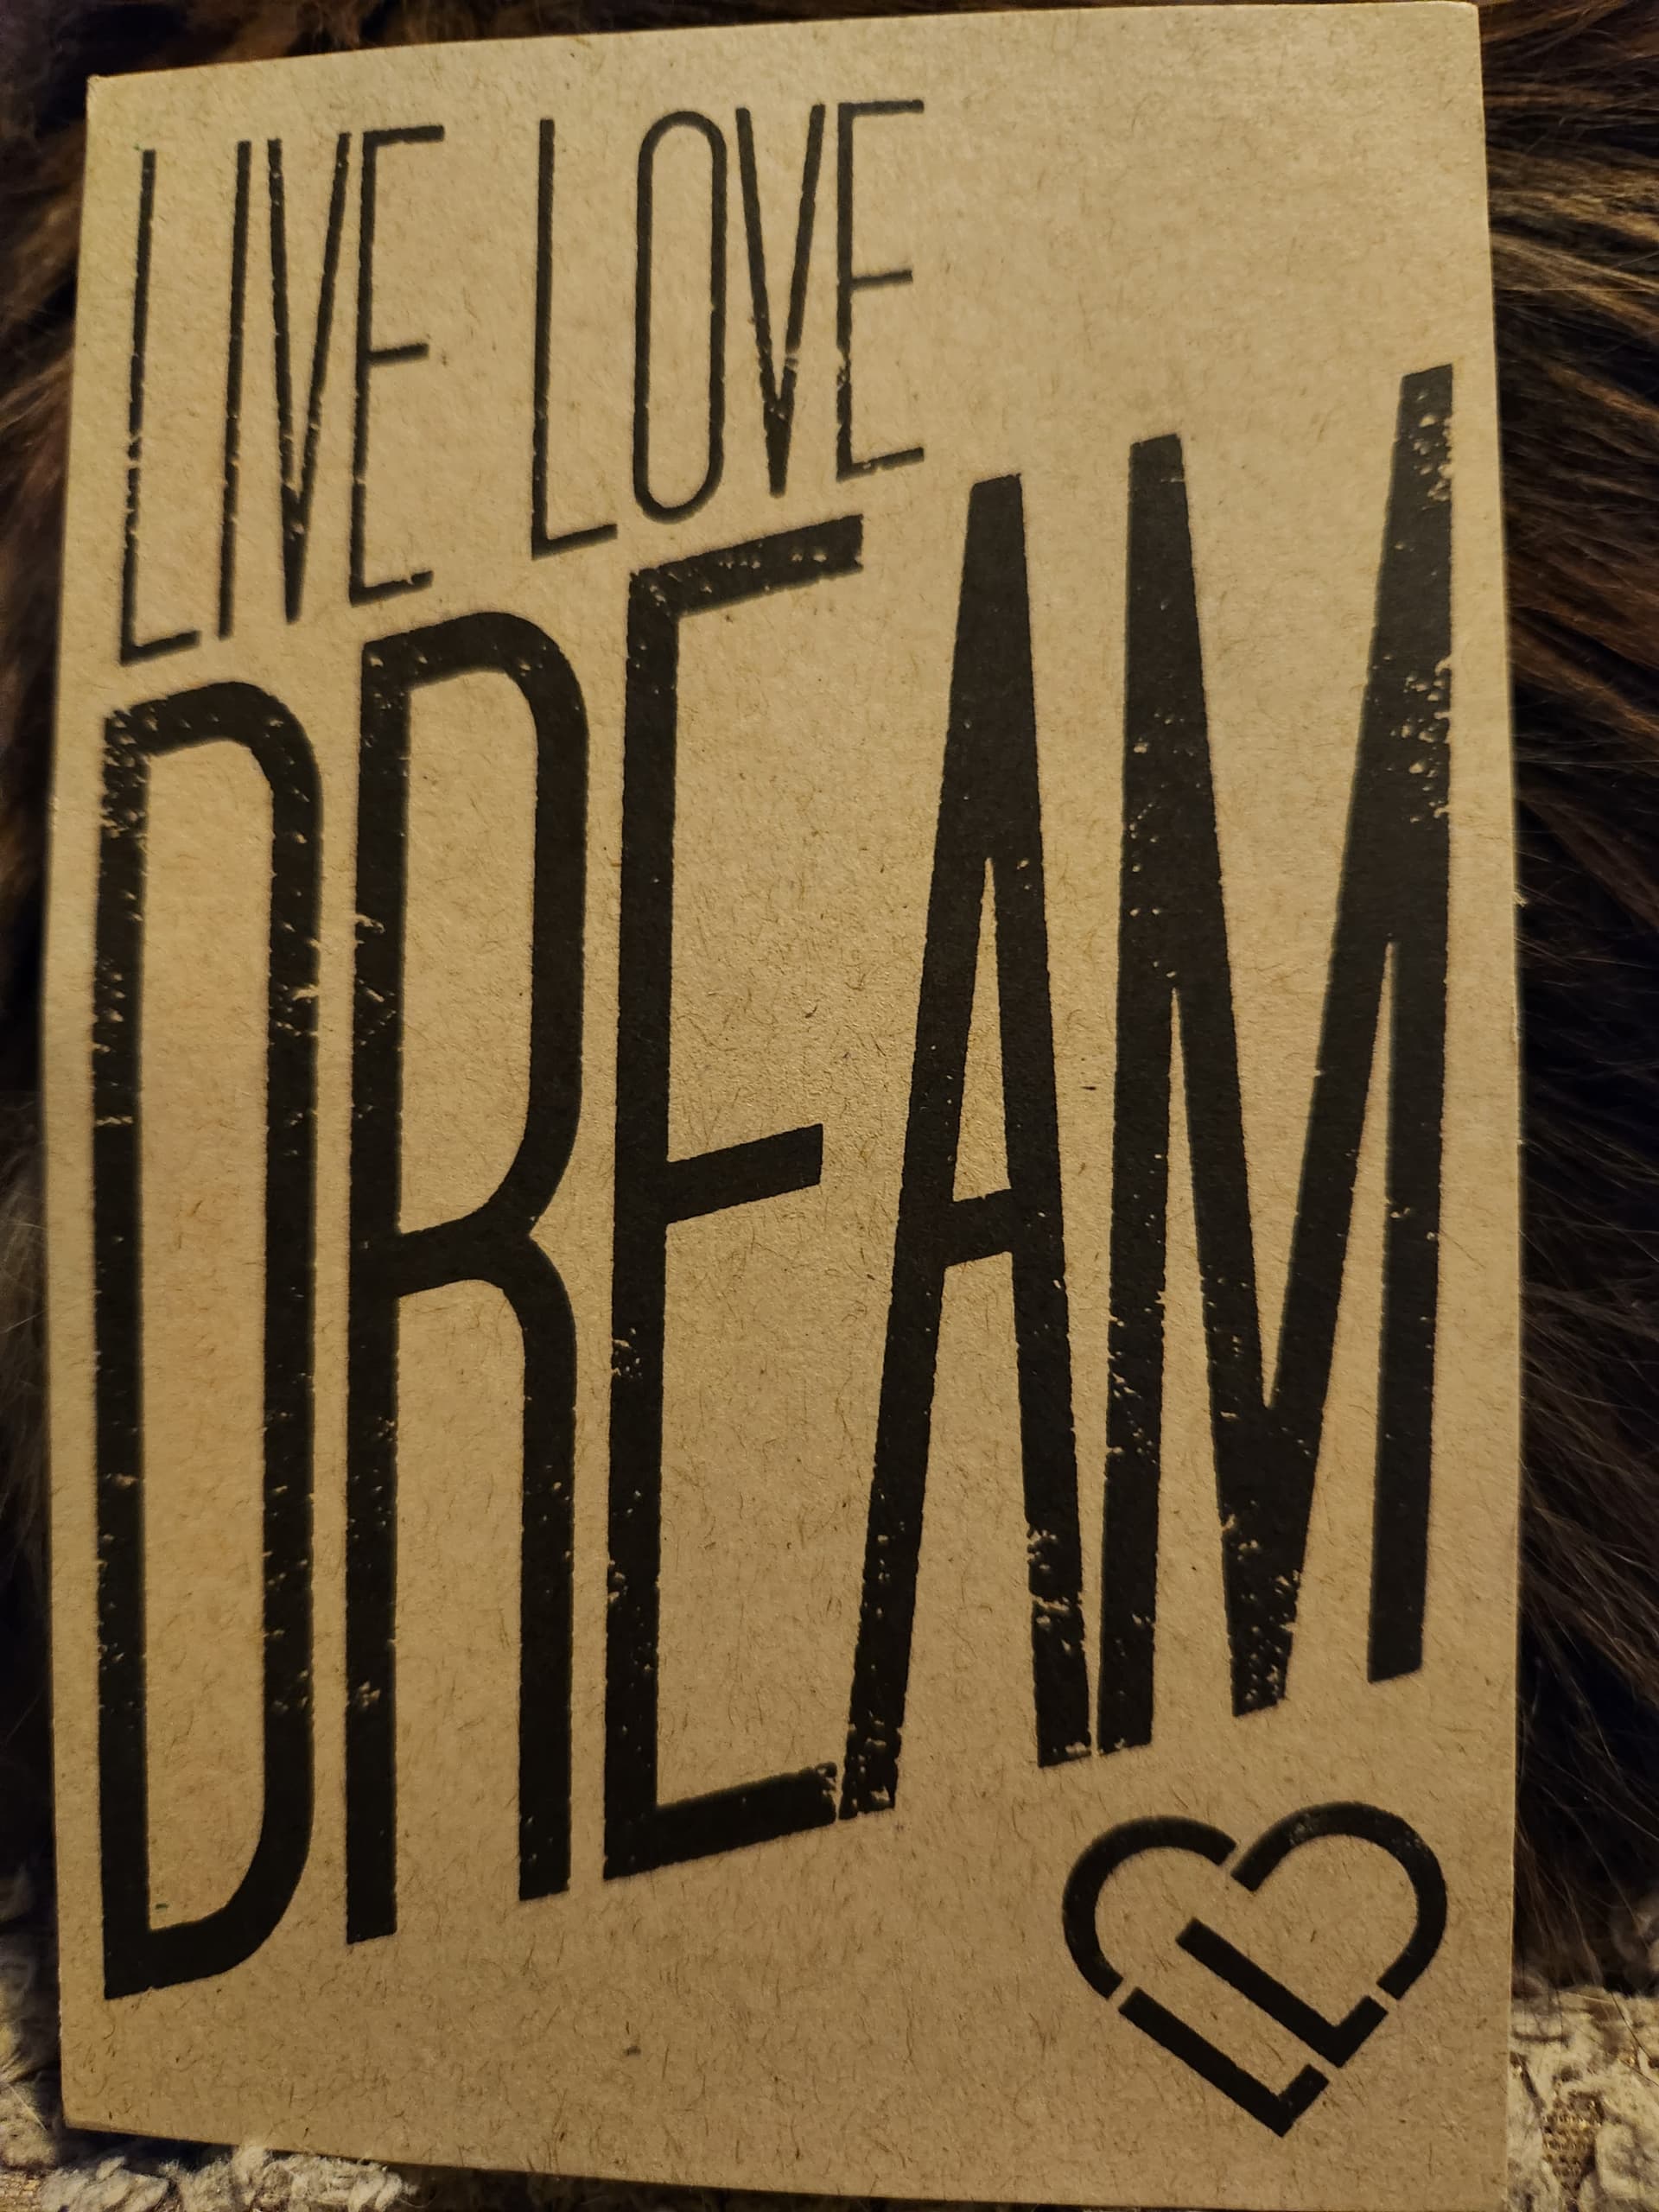 LIVE LOVE
DREAM
LL